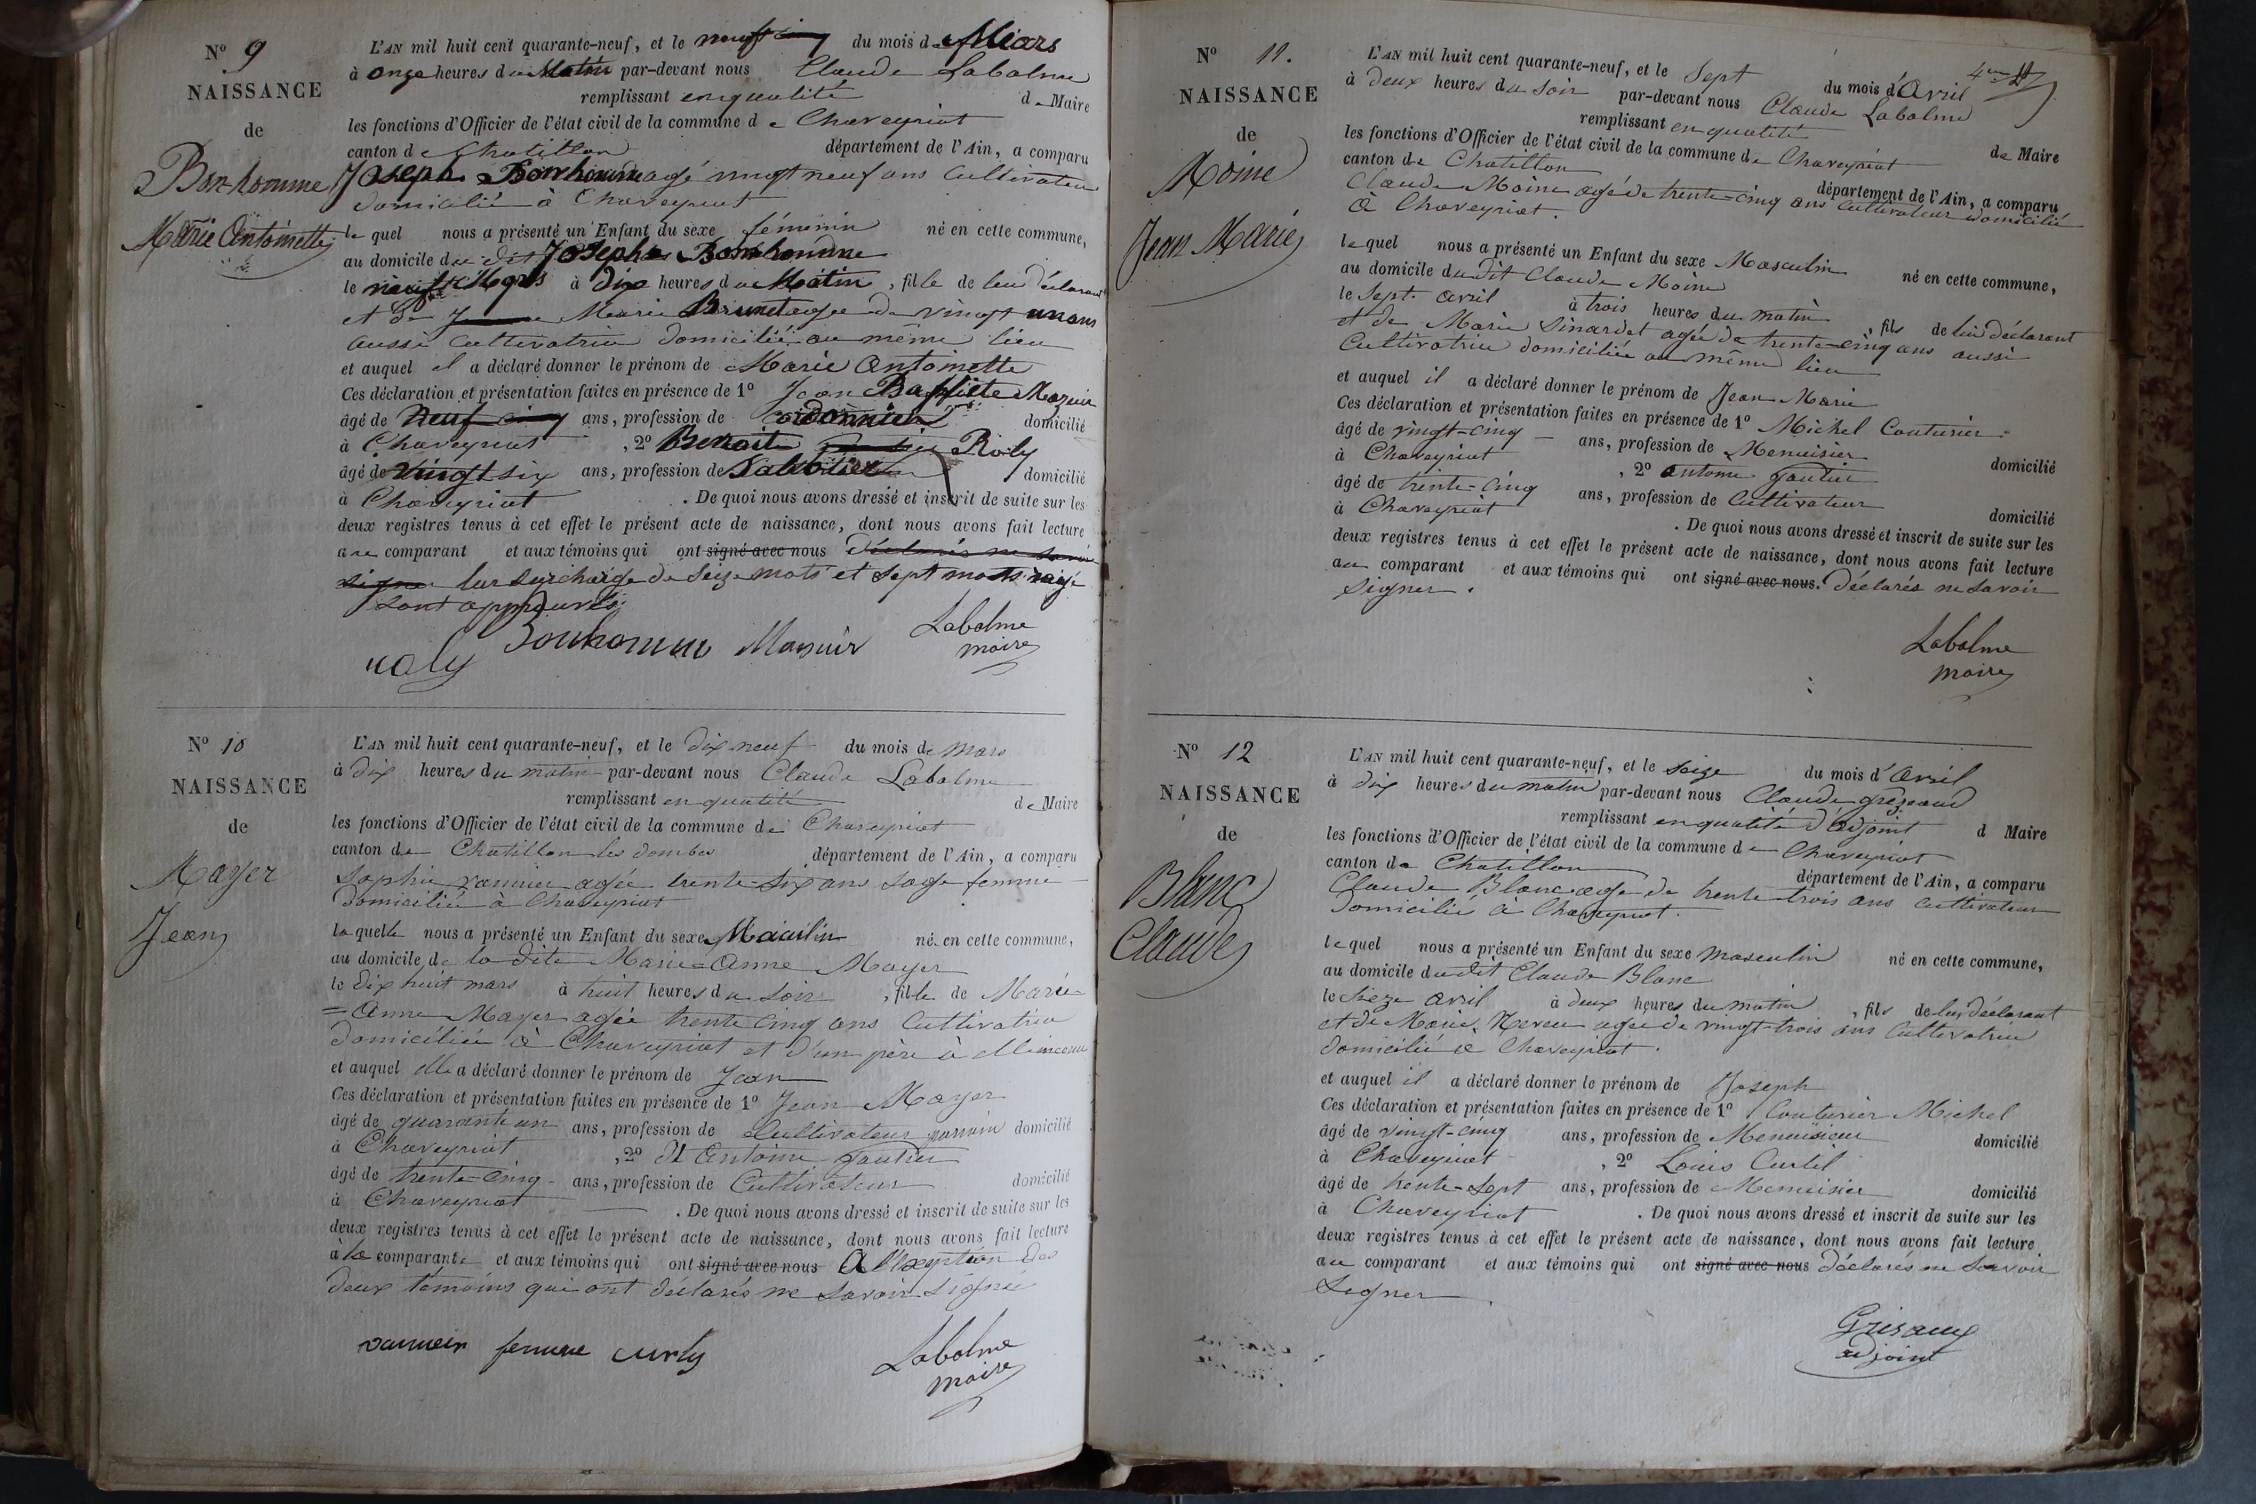 N° 9
NAISSANCE
de
Bonhomme
Marie Antoinette
L'AN mil huit cent quarante-neuf, et le neuf du mois de Mars
à onze heures du Matin par-devant nous Claude Labalme
remplissant en qualité de Maire
les fonctions d'Officier de l'état civil de la commune de Chaveyriat
canton de Chatillon département de l'Ain, a comparu
Joseph Bonhomme agé vingt neuf ans Cultivateur
domicilié à Chaveyriat
le quel nous a présenté un Enfant du sexe féminin né en cette commune,
au domicile du dit Joseph Bonhomme
le neuf Mars à dix heures du Matin, fille de lui déclarant
et de Marie Brunet agée de vingt un ans
aussi cultivatrice domiciliée au même lieu
et auquel il a déclaré donner le prénom de Marie Antoinette
Ces déclaration et présentation faites en présence de 1° Jean Baptiste Mazuir
âgé de neuf ans, profession de cordonnier domicilié
à Chaveyriat, 2° Benoit Roly
âgé de vingt six ans, profession de Sabotier domicilié
à Chaveyriat. De quoi nous avons dressé et inscrit de suite sur les
deux registres tenus à cet effet le présent acte de naissance, dont nous avons fait lecture
au comparant et aux témoins qui ont signé avec nous déclarés ne savoir
signer la surcharge de Seize mots et sept mots rayé
sont approuvés
Bonhomme Mazuir Labalme
maire
N° 10
NAISSANCE
de
Mayer
Jean
L'AN mil huit cent quarante-neuf, et le dix neuf du mois de mars
à dix heures du matin par-devant nous Claude Labalme
remplissant en qualité de Maire
les fonctions d'Officier de l'état civil de la commune de Chaveyriat
canton de Chatillon les dombes département de l'Ain, a comparu
Sophie vannier agée trente six ans sage femme
domiciliée à Chaveyriat
la quelle nous a présenté un Enfant du sexe Maculin né en cette commune,
au domicile de la dite Marie-Anne Mayer
le dix huit mars à huit heures du soir, fille de Marie
=Anne Mayer agée trente cinq ans Cultivatrice
domiciliée à Chaveyriat et d'un père à
et auquel elle a déclaré donner le prénom de Jean
Ces déclaration et présentation faites en présence de 1° Jean Mayer
âgé de quarante un ans, profession de Cultivateur domicilié
à Chaveyriat, 2° et Antoine Gautier
âgé de trente-cinq ans, profession de Cultivateur domicilié
à Chaveyriat. De quoi nous avons dressé et inscrit de suite sur les
deux registres tenus à cet effet le présent acte de naissance, dont nous avons fait lecture
à la comparante et aux témoins qui ont signé avec nous A l'exception des
deux témoins qui ont déclarés ne savoir signer
femme curly Labalme
maire
N° 11.
NAISSANCE
de
Moine
Jean Marie
L'AN mil huit cent quarante-neuf, et le Sept du mois d'Avril
à deux heures du soir par-devant nous Claude Labalme
remplissant en qualité de Maire
les fonctions d'Officier de l'état civil de la commune de Chaveyriat
canton de Chatillon département de l'Ain, a comparu
Claude Moine agé de trente-cinq ans cultivateur domicilié
à Chaveyriat.
le quel nous a présenté un Enfant du sexe Masculin né en cette commune,
au domicile du dit Claude Moine
le Sept avril à trois heures du matin, fils de lui déclarant
et de Marie Sinardet agée de trente-cinq ans aussi
Cultivatrice domiciliée au même lieu
et auquel il a déclaré donner le prénom de Jean Marie
Ces déclaration et présentation faites en présence de 1° Michel Couturier
âgé de vingt-cinq ans, profession de Menuisier domicilié
à Chaveyriat, 2° antoine Gautier
âgé de trente-cinq ans, profession de Cultivateur domicilié
à Chaveyriat. De quoi nous avons dressé et inscrit de suite sur les
deux registres tenus à cet effet le présent acte de naissance, dont nous avons fait lecture
au comparant et aux témoins qui ont signé avec nous. déclarés ne savoir
signer.
Labalme
maire
N° 12
NAISSANCE
de
Blanc
Claude
L'AN mil huit cent quarante-neuf, et le seize du mois d'Avril
à dix heures du matin par-devant nous Claude
remplissant en qualité d'adjoint d Maire
les fonctions d'Officier de l'état civil de la commune de Chaveyriat
canton de Chatillon département de l'Ain, a comparu
Claude Blanc agé de trente-trois ans cultivateur
domicilié à Chaveyriat.
le quel nous a présenté un Enfant du sexe masculin né en cette commune,
au domicile du dit Claude Blanc
le Sieze avril à deux heures du matin, fils de lui déclarant
et de Marie Neveu agée de vingt-trois ans Cultivatrice
domicilié à Chaveyriat.
et auquel il a déclaré donner le prénom de Joseph
Ces déclaration et présentation faites en présence de 1° Couturier Michel
âgé de vingt-cinq ans, profession de Menuisieu domicilié
à Chaveyriat, 2° Louis Curtil
âgé de trente-Sept ans, profession de Menuisier domicilié
à Chaveyriat. De quoi nous avons dressé et inscrit de suite sur les
deux registres tenus à cet effet le présent acte de naissance, dont nous avons fait lecture
au comparant et aux témoins qui ont signé avec nous déclarés ne savoir
signer
adjoint